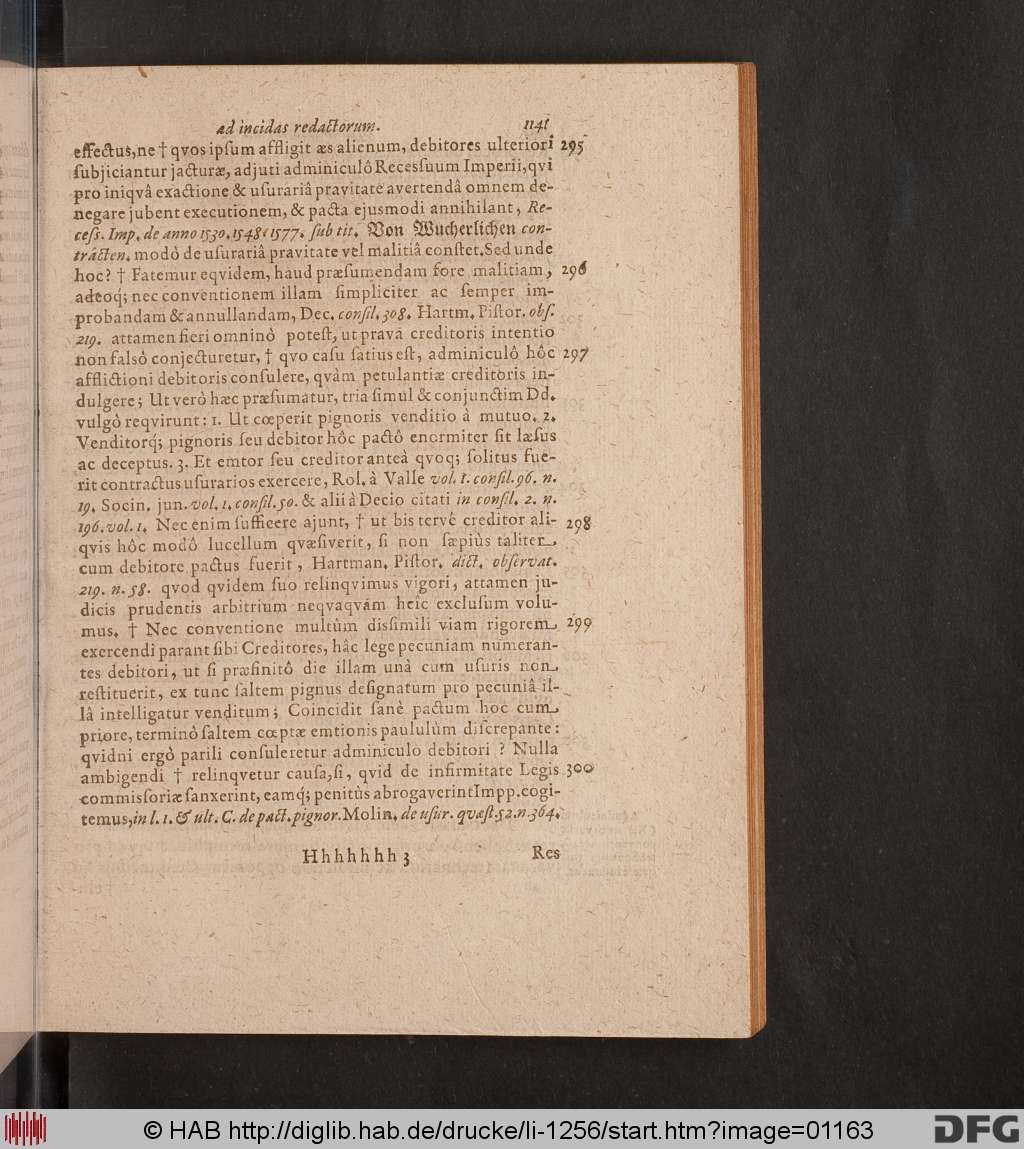 ad incidas redactorum. 1141
effectus, ne † qvos ipſum affligit æs alienum, debitores ulteriori 295
ſubjiciantur jacturæ, adjuti adminiculô Receſſuum Imperii, qvi
pro iniqvâ exactione & uſurariâ pravitate avertendâ omnem de-
negare jubent executionem, & pacta ejusmodi annihilant, Re-
ceſs. Imp. de anno 1530. 1548. 1577. ſub tit. Von Wucherlichen con-
tracten. modò de uſurariâ pravitate vel malitiâ conſtet. Sed unde
hoc? † Fatemur eqvidem, haud præſumendam fore malitiam, 296
adeoq; nec conventionem illam ſimpliciter ac ſemper im-
probandam & annullandam, Dec. conſil. 308. Hartm. Piſtor. obſ.
219. attamen fieri omninò poteſt, ut prava creditoris intentio
non falsò conjecturetur, † qvo caſu ſatius eſt, adminiculô hôc 297
afflictioni debitoris conſulere, qvàm petulantiæ creditoris in-
dulgere; Ut verò hæc præſumatur, tria ſimul & conjunctim Dd.
vulgò reqvirunt: 1. Ut cœperit pignoris venditio à mutuo. 2.
Venditorq; pignoris ſeu debitor hôc pactô enormiter ſit læſus
ac deceptus. 3. Et emtor ſeu creditor anteà qvoq; ſolitus fue-
rit contractus uſurarios exercere, Rol. à Valle vol. 1. conſil. 96. n.
19. Socin. jun. vol. 1. conſil. 50. & alii à Decio citati in conſil. 2. n.
196. vol. 1. Nec enim ſufficere ajunt, † ut bis tervè creditor ali- 298
qvis hôc modô lucellum qvæſiverit, ſi non ſæpiùs taliter
cum debitore pactus fuerit, Hartman. Piſtor. dict. obſervat.
219. n. 58. qvod qvidem ſuo relinqvimus vigori, attamen ju-
dicis prudentis arbitrium neqvaqvàm heîc excluſum volu-
mus. † Nec conventione multùm disſimili viam rigorem 299
exercendi parant ſibi Creditores, hâc lege pecuniam numeran-
tes debitori, ut ſi præfinitô die illam unà cum uſuris non
reſtituerit, ex tunc ſaltem pignus deſignatum pro pecuniâ il-
lâ intelligatur venditum; Coincidit ſanè pactum hoc cum
priore, terminò ſaltem cœptæ emtionis paululùm diſcrepante:
qvidni ergò parili conſuleretur adminiculo debitori? Nulla
ambigendi † relinqvetur cauſa, ſi, qvid de infirmitate Legis 300
commiſſoriæ ſanxerint, eamq; penitùs abrogaverint Impp. cogi-
temus, in l. 1. & ult. C. de pact. pignor. Molin. de uſur. qvæſt. 52. n. 364.
Hhhhhhh 3 Res
© HAB http://diglib.hab.de/drucke/li-1256/start.htm?image=01163
DFG